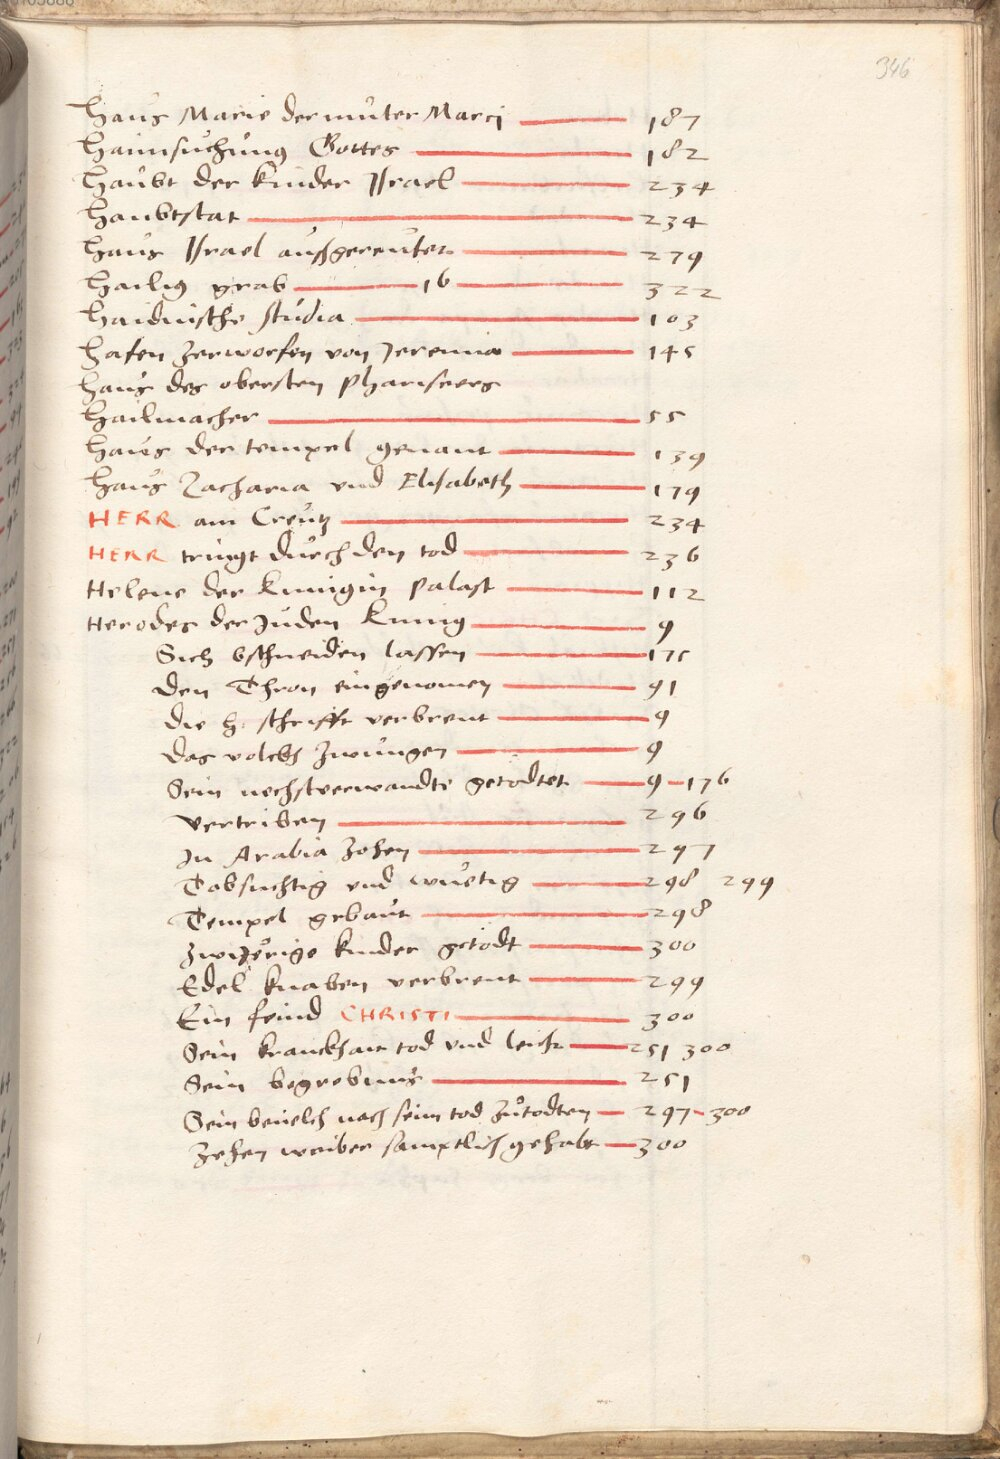 346
Haus Marie der muter Marcj 187
Haimsuchung Gottes 182
Haubt der kinder Israel 234
Haubtstat 234
Haus Israel aussgereutet 279
Hailig grab 16 322
Haidnische studia 103
Hafen zerworfen von Jeremia 145
Haus des obersten phariseers
Hailmacher 55
Haus der tempel genant 139
Haus Zacharia vnd Elisabeth 179
HERR am Creutz 234
HERR tringt durch den tod 236
Helene der kunigin palast 112
Herodes der Juden kunig 9
Sich bschneiden lassen 175
Den Thron eingenomen 91
die h. schrifft verbrent 9
das volckh zwungen 9
Sein nechstverwandte getödtet 9-176
vertriben 296
In Arabia zohen 297
Tobsuchtig vnd wuetig 298 299
Tempel gebaut 298
zwijerige kinder getödt 300
Edel knaben verbrent 299
Ein feind CHRISTI 300
Sein kranckhait tod vnd leich 251 300
Sein begrebnus 251
Sein bevelch nach seim tod zutödten 297-300
Zehen weiber samptlich gehabt 300